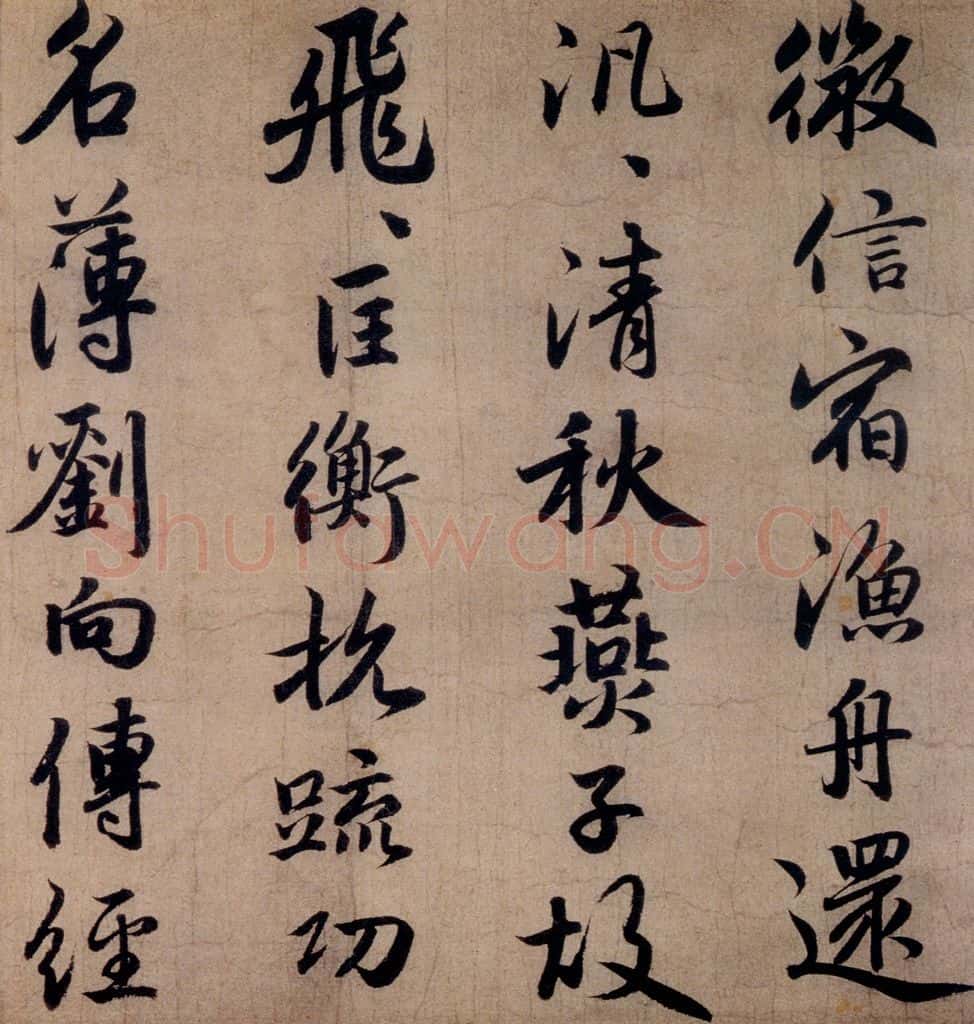 微信宿漁舟還
汎〻清秋燕子故
飛〻匡衡抗疏功
名薄劉向傳經
Shufawang.CN